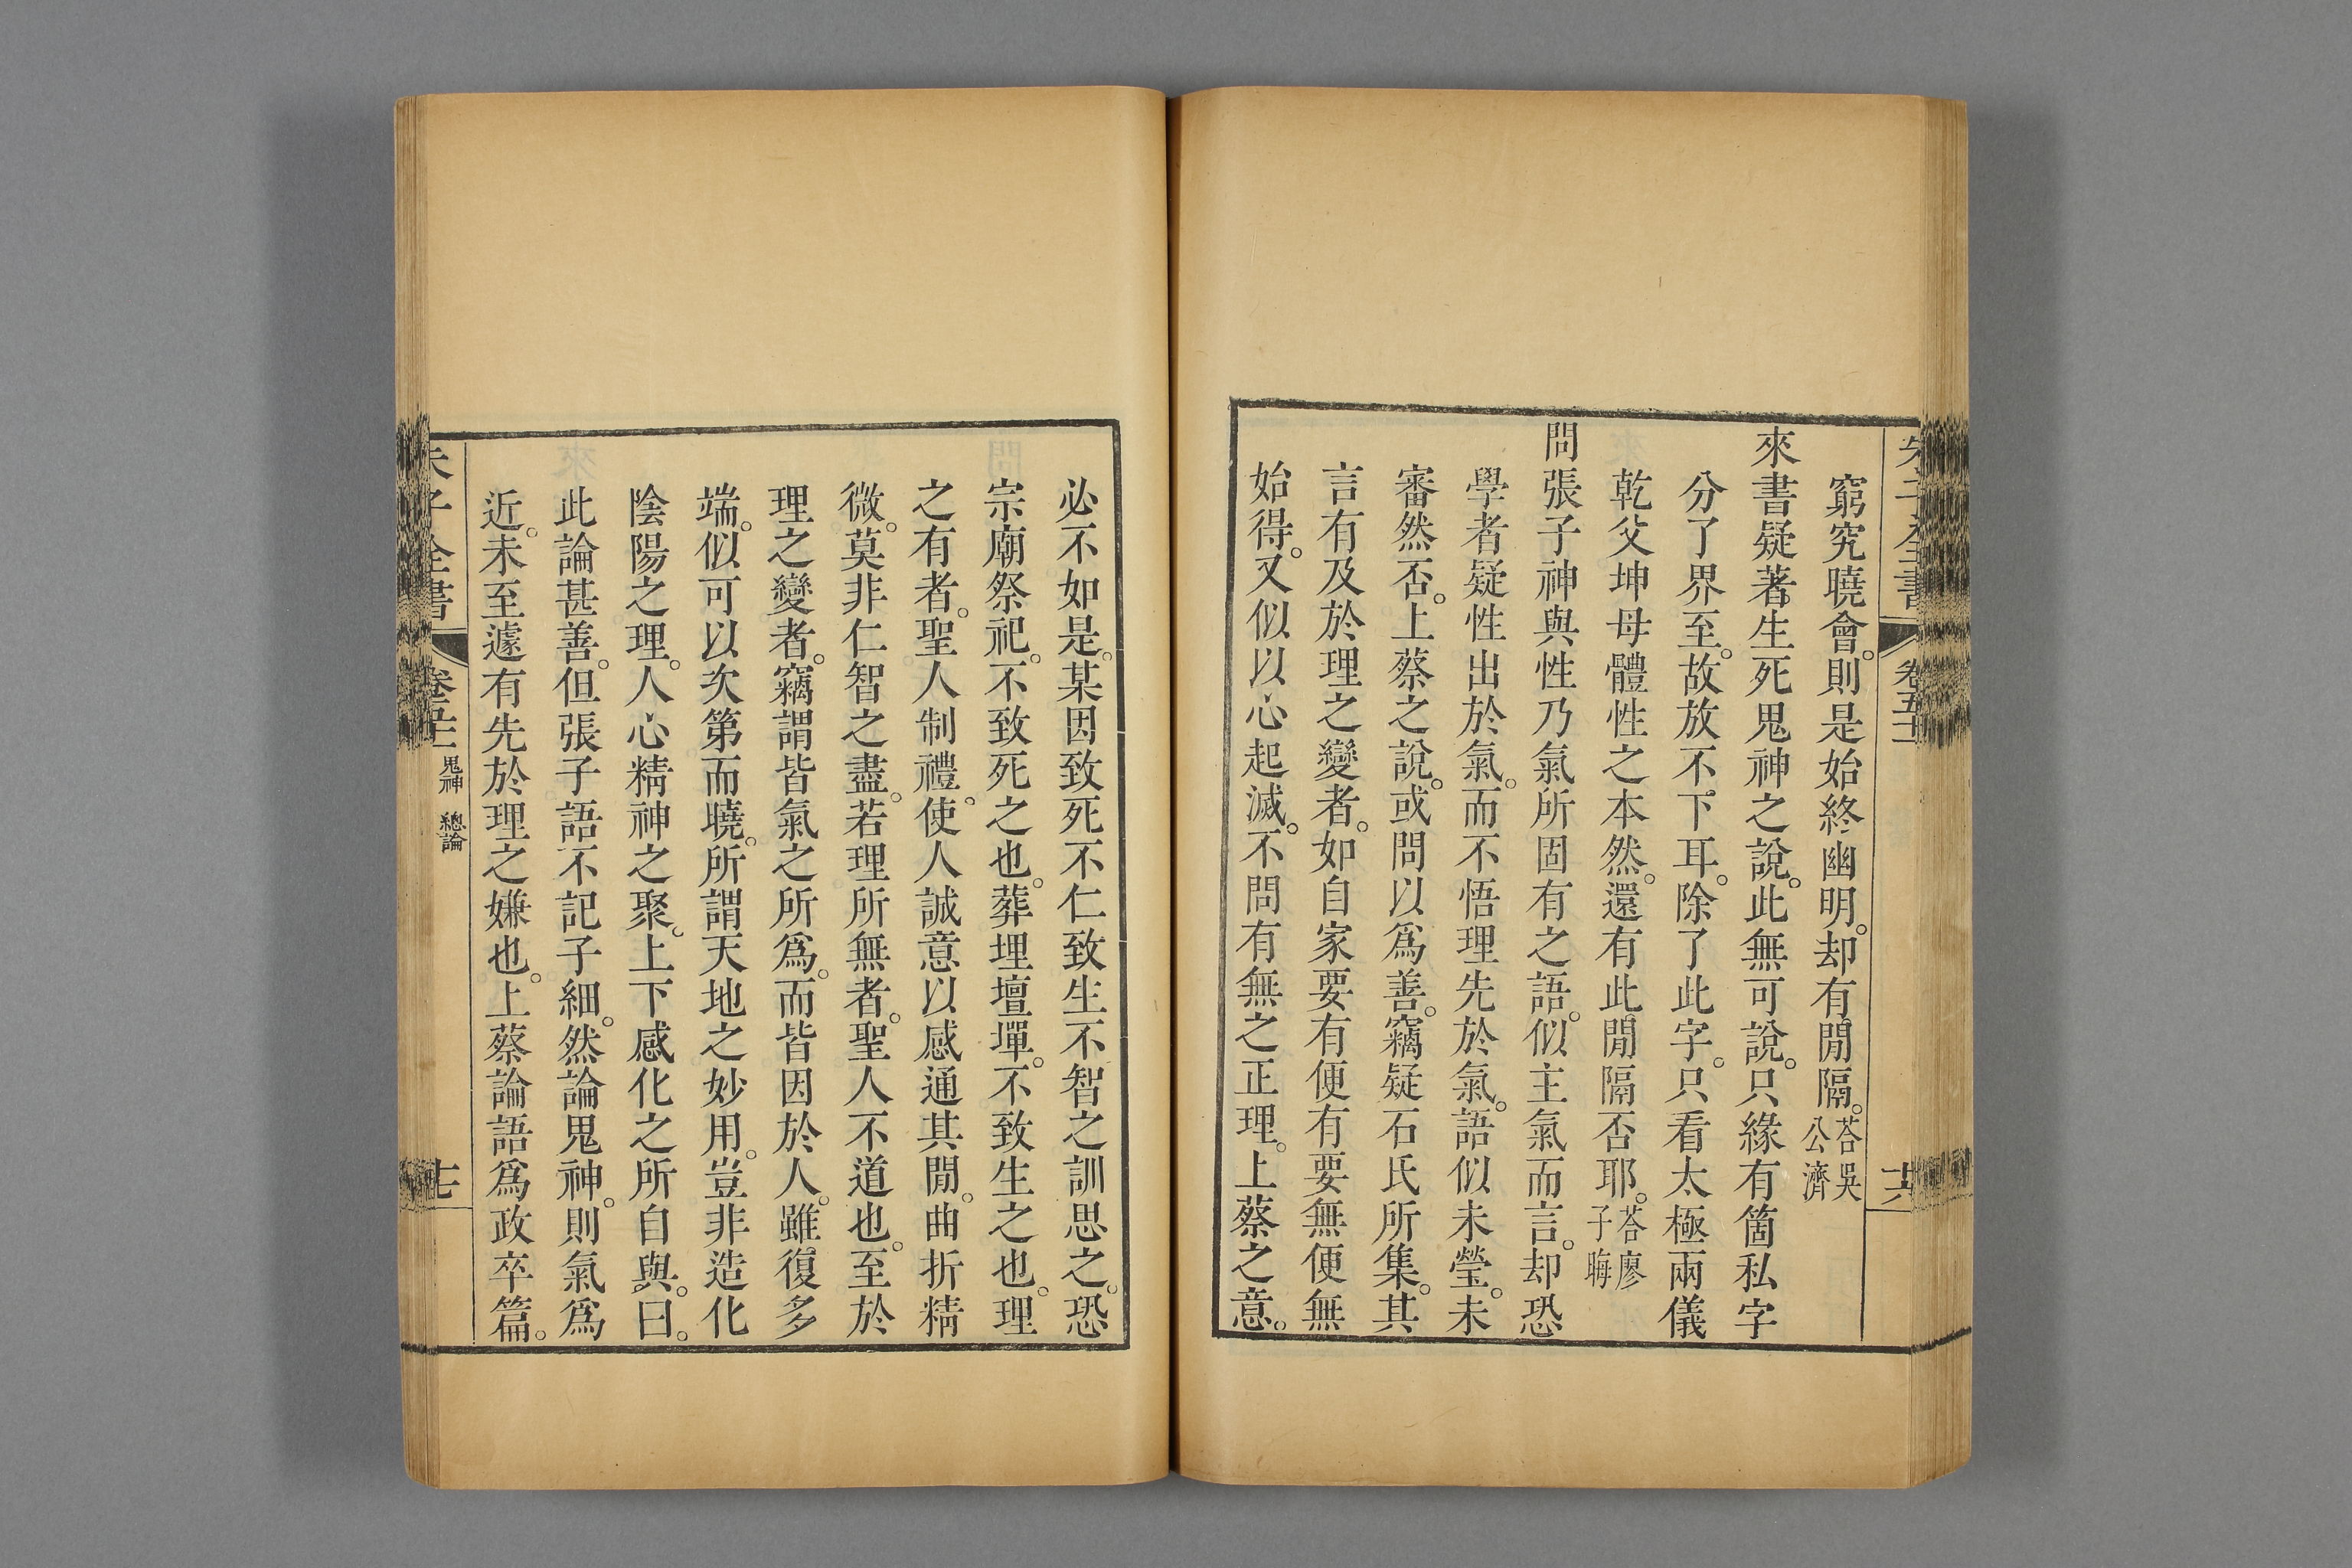 窮究曉會。則是始終幽明。却有閒隔。答吳公濟
來書疑著生死鬼神之說。此無可說。只緣有箇私字
分了界至。故放不下耳。除了此字。只看太極兩儀
乾父坤母體性之本然。還有此閒隔否耶。答廖子晦
問張子神與性乃氣所固有之語。似主氣而言。却恐
學者疑性出於氣。而不悟理先於氣。語似未瑩。未
審然否。上蔡之說。或問以爲善。竊疑石氏所集。其
言有及於理之變者。如自家要有便有要無便無
始得。又似以心起滅。不問有無之正理。上蔡之意。
必不如是。某因致死不仁致生不智之訓思之。恐
宗廟祭祀。不致死之也。葬埋壇墠。不致生之也。理
之有者。聖人制禮。使人誠意以感通其閒。曲折精
微。莫非仁智之盡。若理所無者。聖人不道也。至於
理之變者。竊謂皆氣之所爲。而皆因於人。雖復多
端。似可以次第而曉。所謂天地之妙用。豈非造化
陰陽之理。人心精神之聚。上下感化之所自與。曰。
此論甚善。但張子語不記子細。然論鬼神。則氣爲
近。未至遽有先於理之嫌也。上蔡論語爲政卒篇。
鬼神 總論